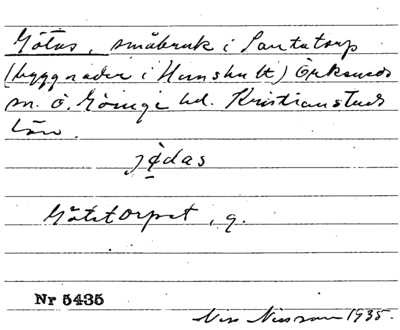 Götas, småbruk i Santatorp
(byggnader i Hunshult) Örkeneds
sn. Ö. Göinge hd. Kristianstads
län.
jǿdas
Götatorpet, g.
Nr 5435
Nils Nilsson 1935.